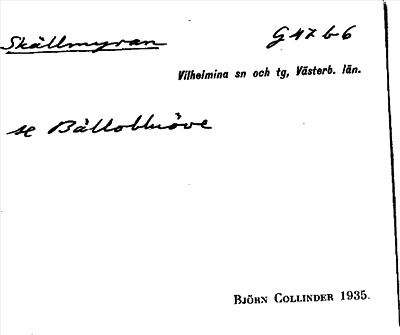 Skällmyran G 47 b 6
Vilhelmina sn och tg, Västerb. län.
se Bällobluöve
BJÖRN COLLINDER 1935.